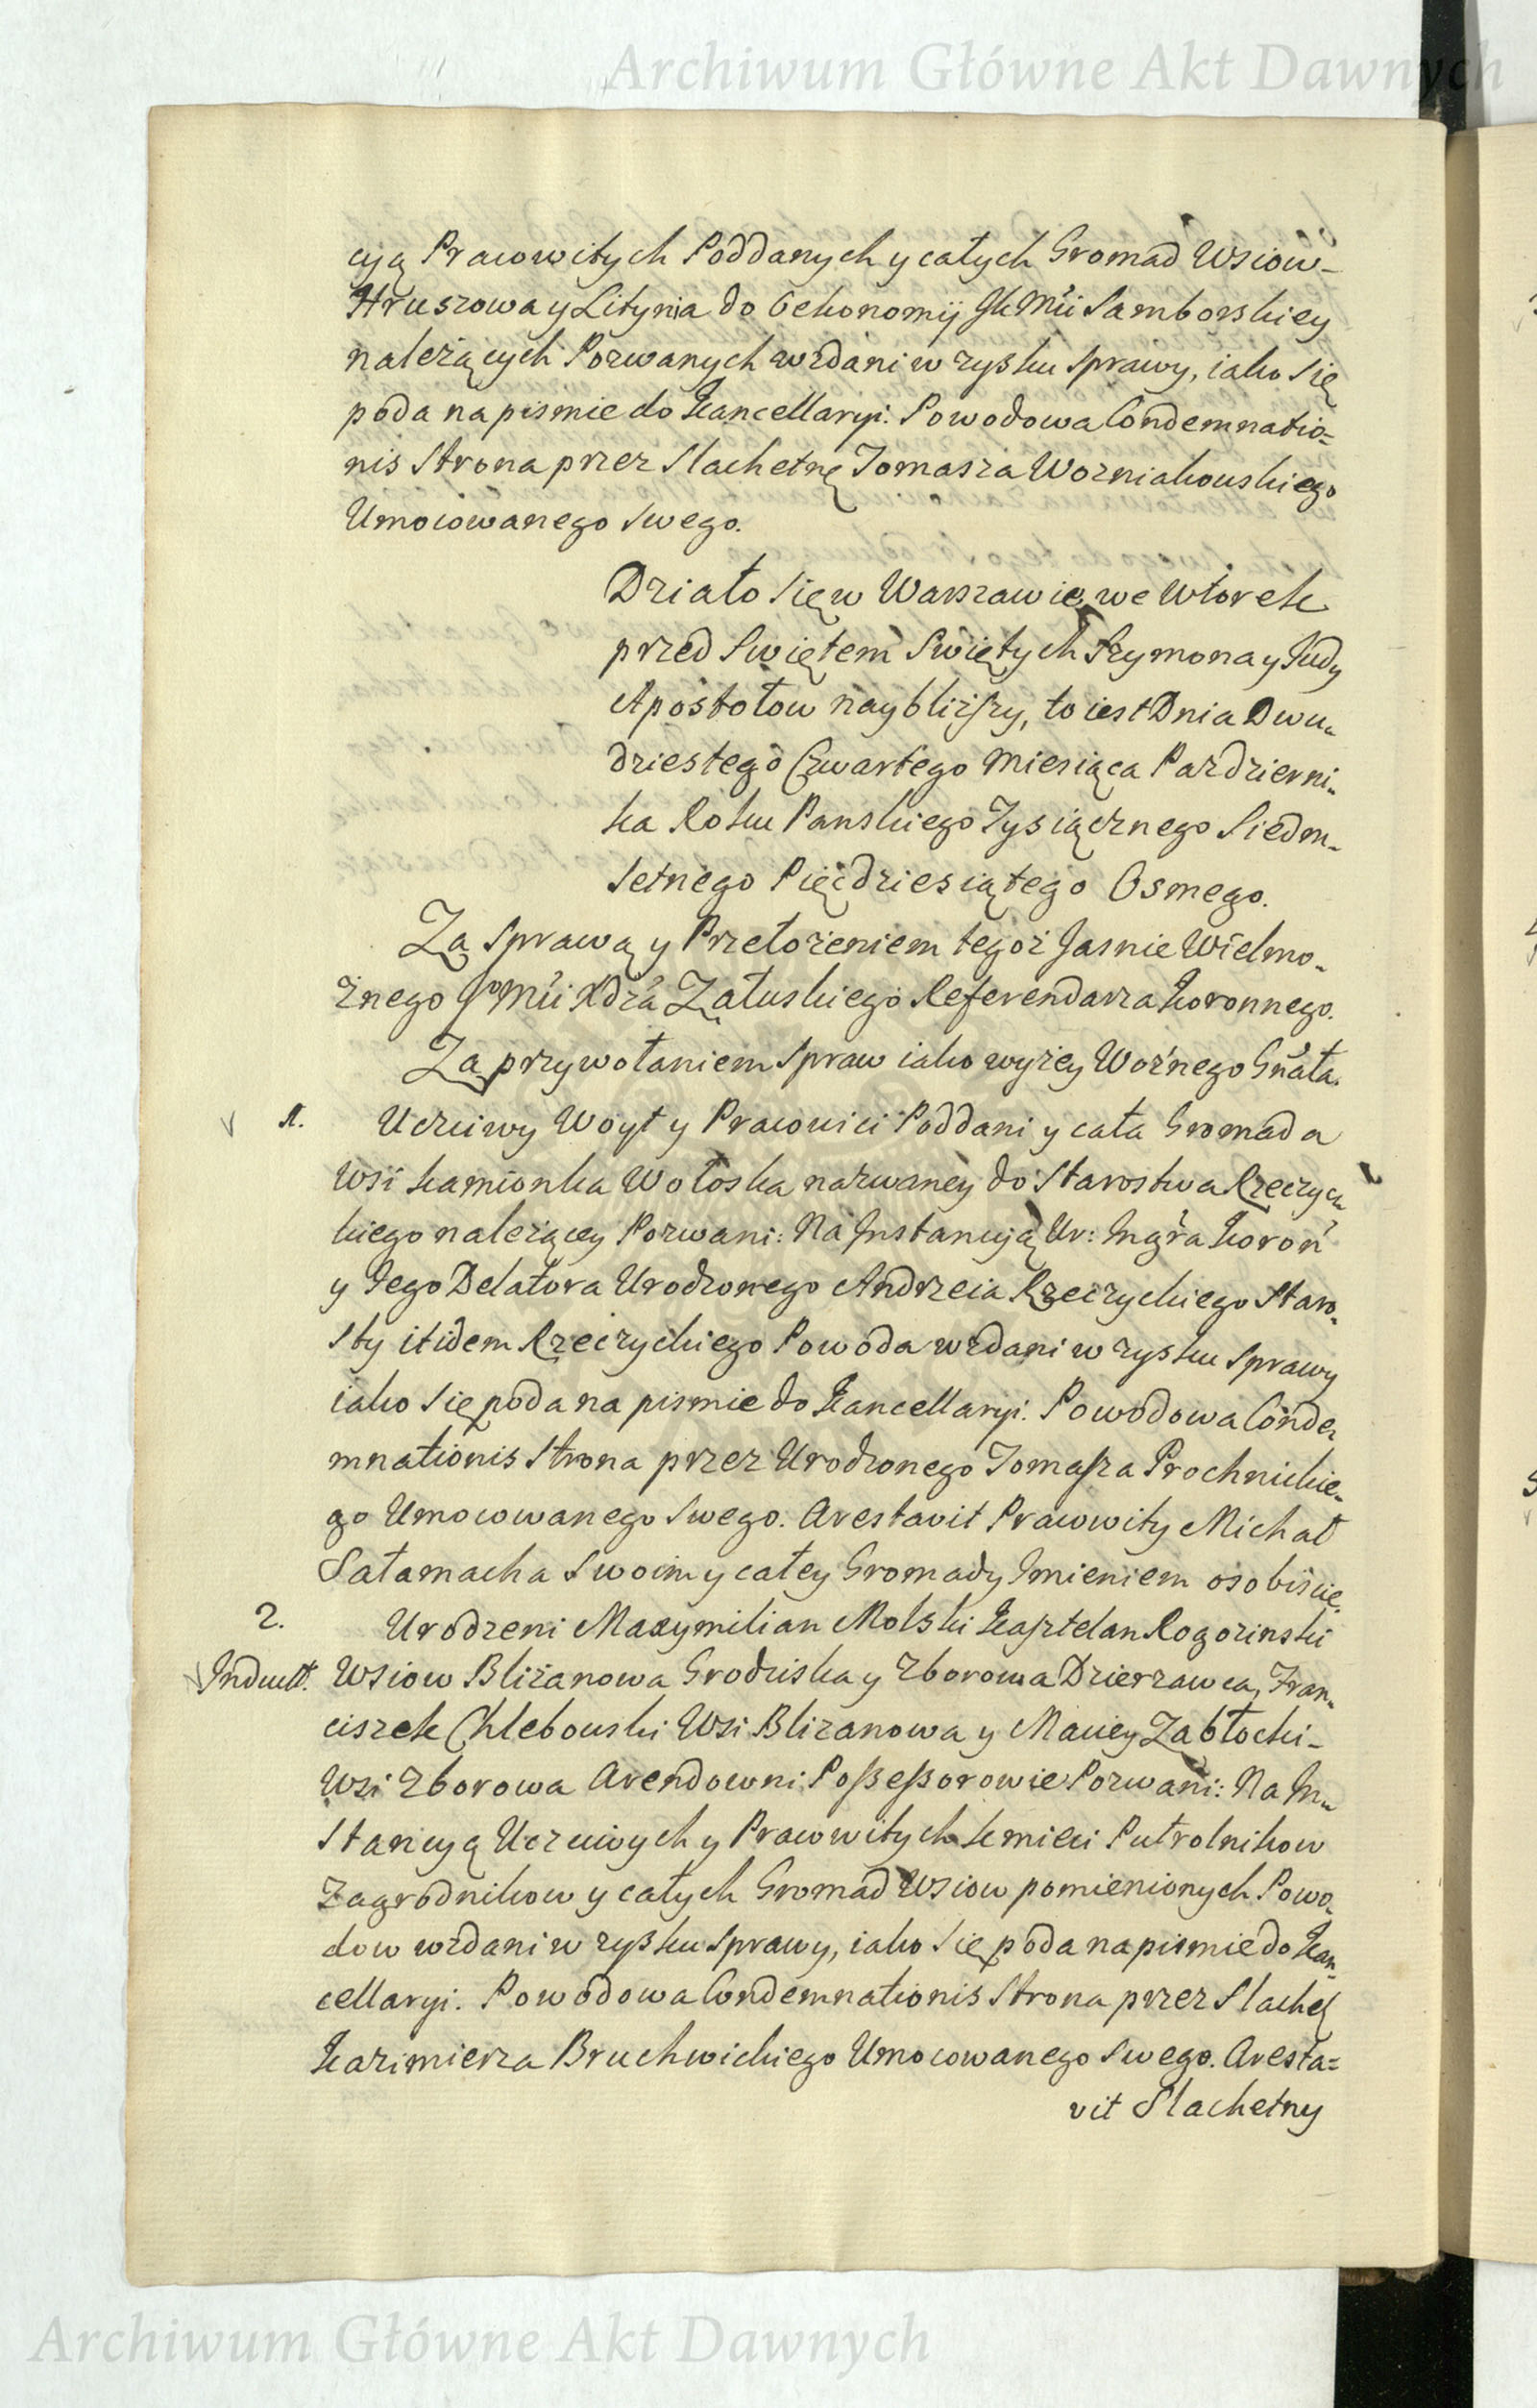 Archiwum Główne Akt Dawnych
cyą Pracowitych Poddanych y całych Gromad Wsiow
Hruszowa y Litynia do Oekonomij JK Mći Samborskiey
należących Pozwanych wzdani w zysku sprawy, iako się
poda na pismie do Kancellaryi. Powodowa Condemnatio=
nis Strona przez Slachetnę Tomasza Wozniakowskiego
Umocowanego Swego.
Działo się w Warszawie we Wtorek
przed Swiętem Swiętych Szymona y Judy
Apostołow naybliższy, to iest Dnia Dwu-
dziestego Czwartego Miesiąca Pazdzierni-
ka Roku Panskiego Tysiącznego Siedm-
setnego Pięcdziesiątego Osmego.
Za Sprawą y Przełożeniem tegoż Jasnie Wielmo-
żnego Jᵒ Mći Xdza Załuskiego Referendarza Koronnego.
Za przywołaniem Spraw iako wyżey Woźnego Gnata.
1. Uczciwy Woyt y Pracowici Poddani y cała Gromada
Wsi Kamionka Wołoska nazwaney do Starostwa Rzeczyc
kiego należącey Pozwani: Na Instancyją Ur: Ingra Koron
y Iego Delatora Urodzonego Andrzeia Rzeczyckiego Staro-
sty itidem Rzeczyckiego Powoda wzdani w zysku sprawy
iako się poda na pismie do Kancellaryi. Powodowa Conde
mnationis Strona przez Urodzonego Tomasza Prochnickie-
go Umocowanego Swego. Arestavit Pracowity Michał
Sałamacha Swoim y całey Gromady Imieniem osobiscie.
2. Urodzeni Maxymilian Molski Kasztelan Rogozinski
Indult. Wsiow Bliżanowa Grodziska y Zborowa Dzierzawca, Fran-
ciszek Chlebowski Wsi Blizanowa y Maciey Zabłocki
Wsi Zborowa Arendowni Possessorowie Pozwani: Na In-
stancyą Uczciwych y Pracowitych Kmieci Pułrolnikow
Zagrodnikow y całych Gromad Wsiow pomienionych Powo-
dow wzdani w zysku Sprawy, iako się poda na pismie do Kan-
cellaryi. Powodowa Condemnationis Strona przez Slachet
Kazimierza Bruchwickiego Umocowanego Swego. Aresta=
vit Slachetny
Archiwum Główne Akt Dawnych